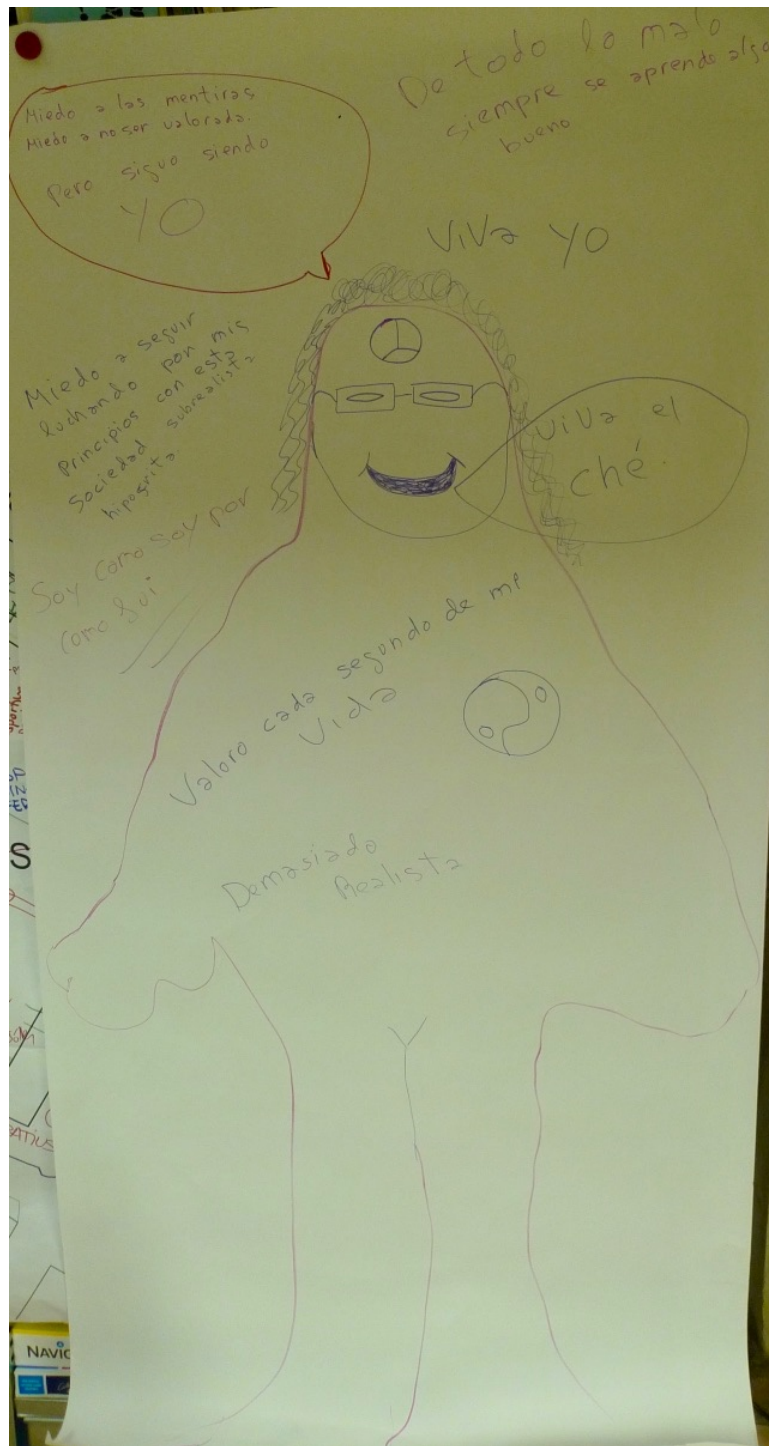 Miedo a las mentiras
Miedo a no ser valorada.
Pero siguo siendo
YO
De todo lo malo
siempre se aprende algo
bueno
ViVa YO
Miedo a seguir
luchando por mis
principios con esta
sociedad subrealista
hipogrita
ViVa el
Ché.
Soy como soy por
como fui
Valoro cada segundo de mi
Vida
Demasiado
Realista
S
NAVIG